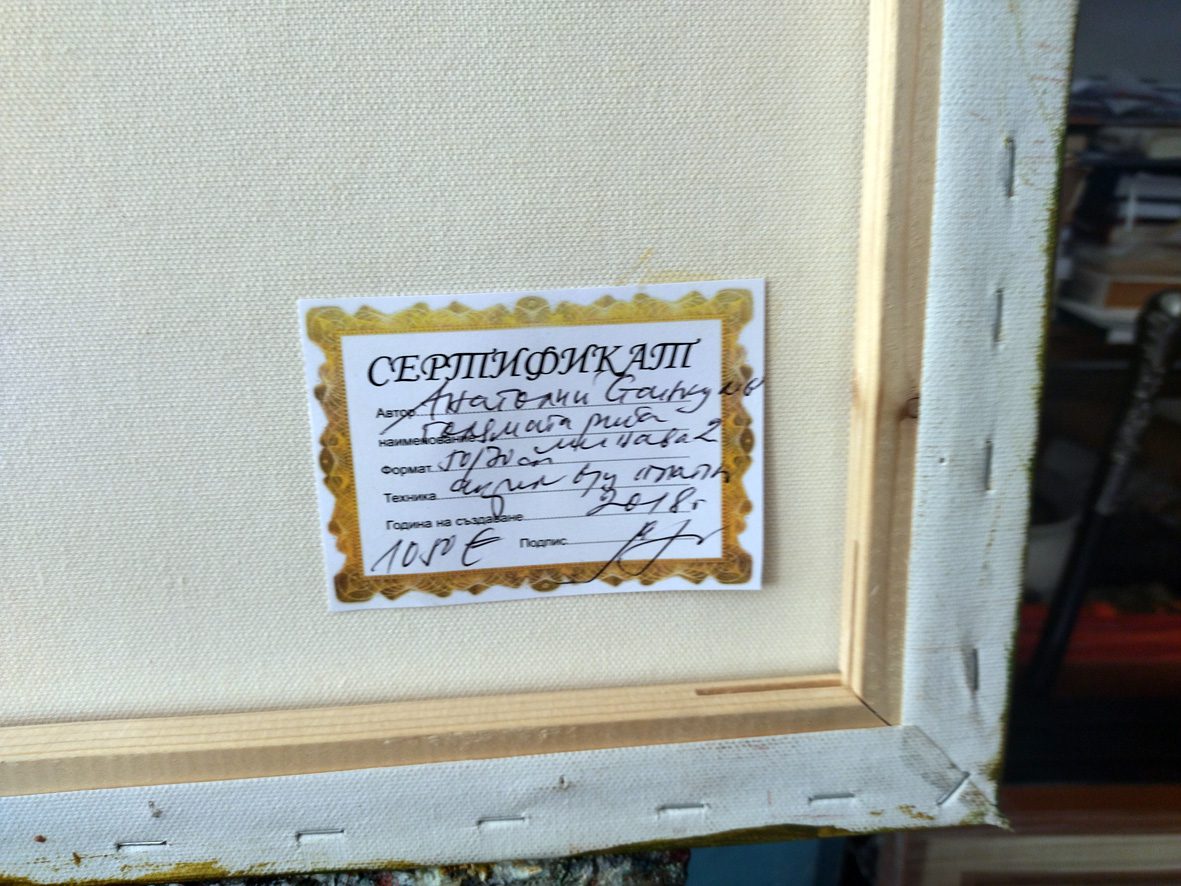 СЕРТИФИКАТ
Автор Анатолий Станкулов
наименование Голямата риба
минава 2
Формат 50/70 см
Техника акрил в/у платно
Година на създаване 2018г
1050 € Подпис